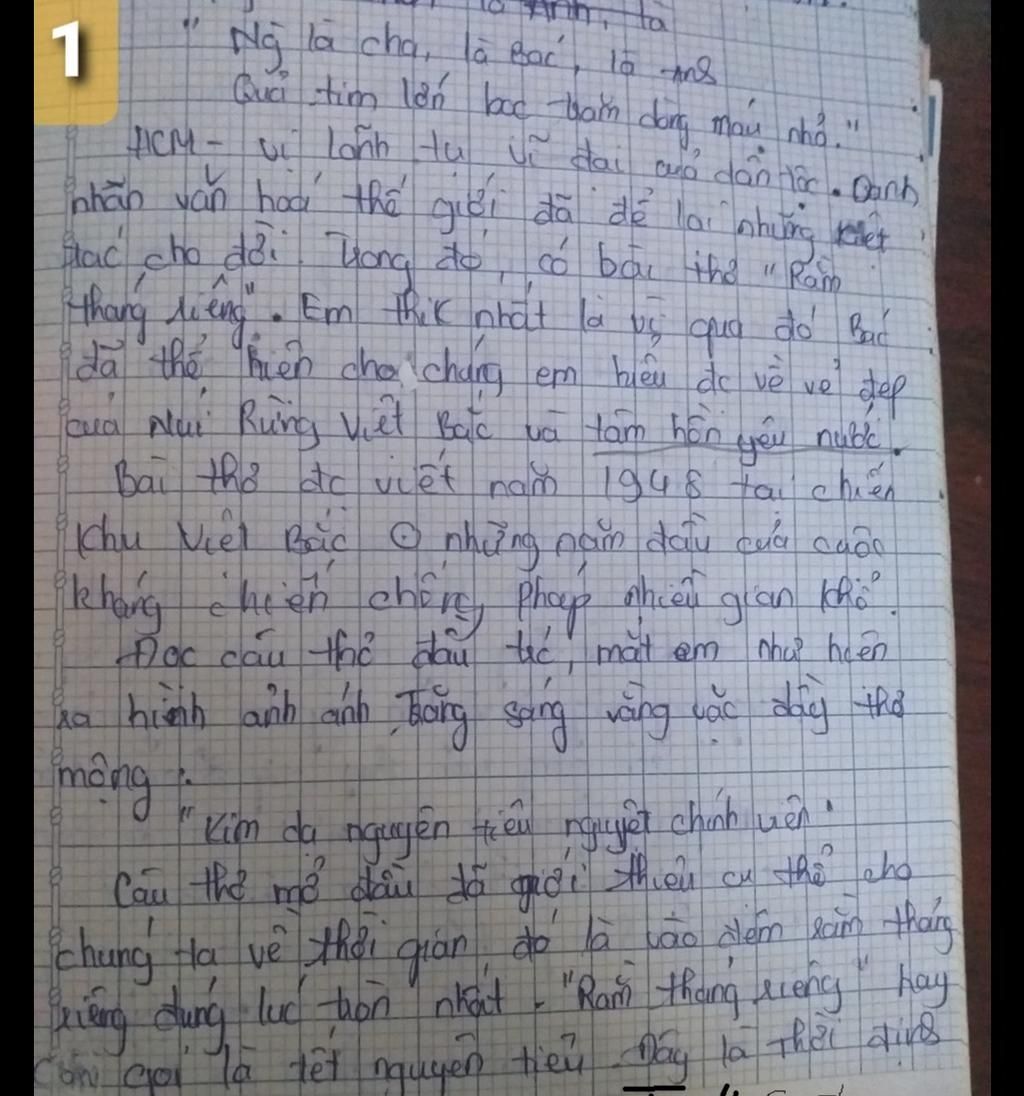 1
Anh, ta
" Ng là cha, là Bác, là anh
Quả tim lớn bọc trăm dòng máu nhỏ."
HCM - vị lãnh tụ vĩ đại của dân tộc. Danh
nhân văn hoá thế giới đã để lại những kiệt
tác cho đời. Trong đó, có bài thơ "Rằm
tháng riêng". Em thik nhất là vì qua đó Bác
đã thể hiện cho chúng em hiểu đc về vẻ đẹp
của Núi Rừng Việt Bắc và tâm hồn yêu nước.
Bài thơ đc viết năm 1948 tại chiến
khu Việt Bắc ở những năm đầu của cuộc
kháng chiến chống Pháp nhiều gian khổ.
Đọc câu thơ đầu tiê, mắt em như hiện
ra hình ảnh ánh Trăng sáng vằng vặc đầy thơ
mộng:
"Kim dạ nguyên tiêu nguyệt chính viên"
Câu thơ mở đầu đã giới thiệu cụ thể cho
chúng ta về thời gian, đó là vào đêm rằm tháng
riêng đúng lúc tròn nhất. "Rằm tháng riêng" hay
Còn gọi là tết nguyên tiêu. Đây là thời